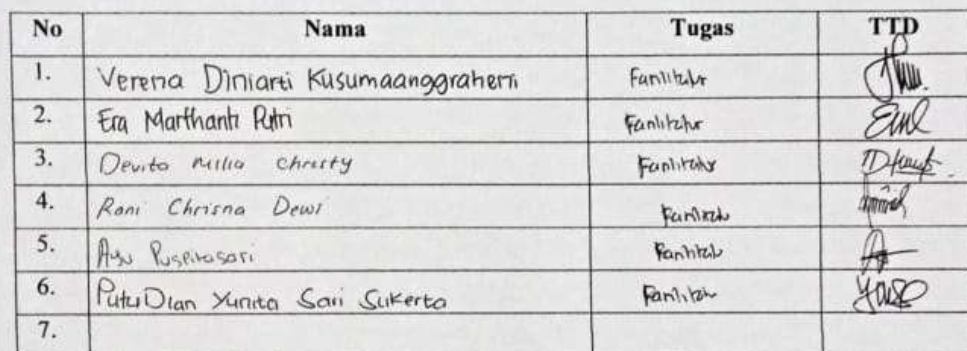 No Nama Tugas TTD
1. Verena Diniarti Kusumaanggraheni Fasilitator
2. Era Marthanti Putri Fasilitator
3. Devita Milia Christy Fasilitator
4. Rani Chrisna Dewi Fasilitator
5. Ayu Puspitasari Fasilitator
6. Putu Dian Yunita Sari Sukerta Fasilitator
7.